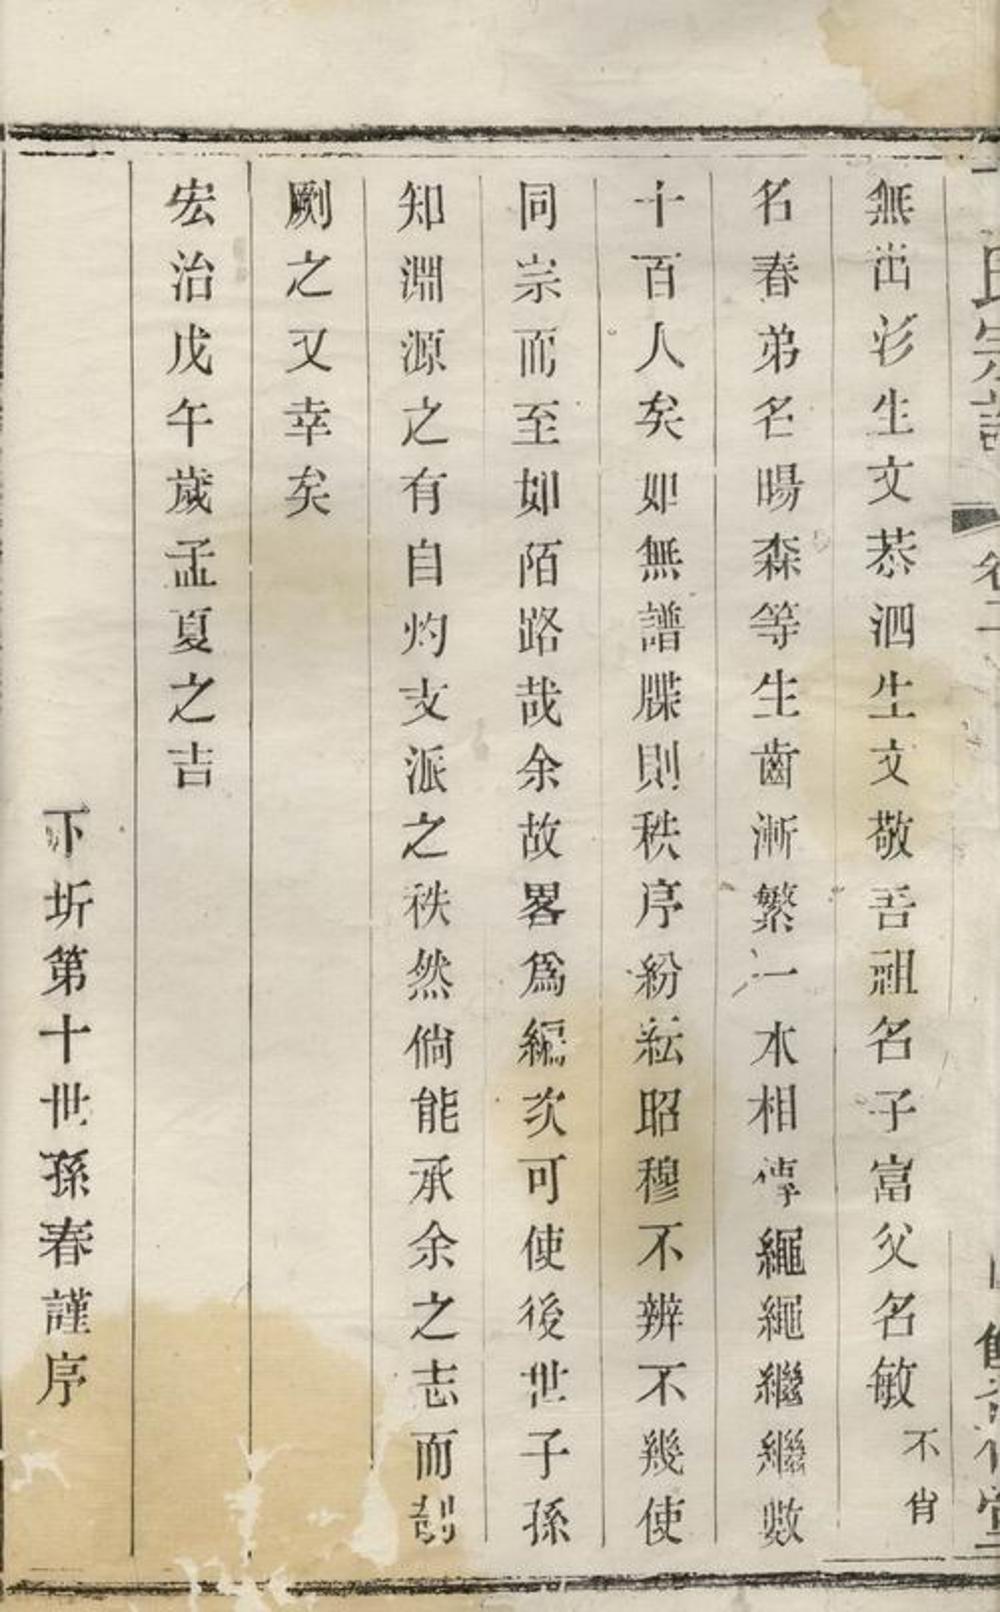 氏宗譜 卷
無嵩彣生文恭泗生文敬吾祖名子富父名敏不肖
名春弟名暘森等生齒漸繁一水相傳繩繩繼繼數
十百人矣如無譜牒則秩序紛紜昭穆不辨不幾使
同宗而至如陌路哉余故畧爲編次可使後世子孫
知淵源之有自灼支派之秩然倘能承余之志而剞
劂之又幸矣
宏治戊午歲孟夏之吉
下圻第十世孫春謹序